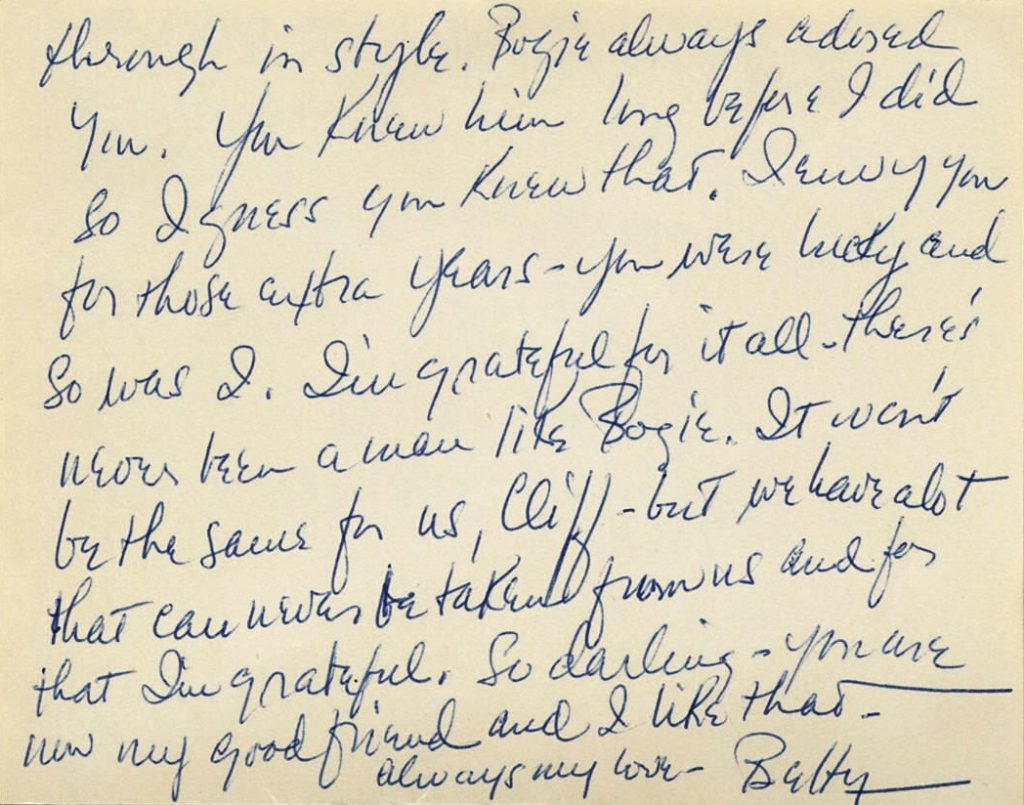 through in style. Bogie always adored
you. You knew him long before I did
so I guess you knew that. I envy you
for those extra years - you were lucky and
so was I. I'm grateful for it all - there's
never been a man like Bogie. It won't
be the same for us, Cliff - but we have alot
that can never be taken from us and for
that I'm grateful. So darling - you are
now my good friend and I like that -
always my love - Betty